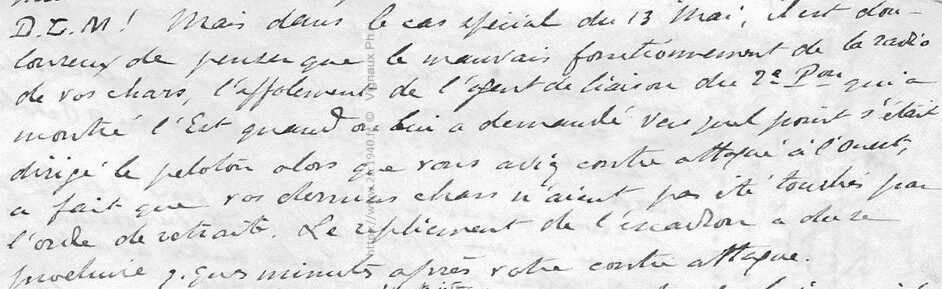 D.L.M! Mais dans le cas spécial du 13 Mai, il est dou-
loureux de penser que le mauvais fonctionnement de la radio
de vos chars, l'affolement de l'agent de liaison du 2e Pon qui a
montré l'Est quand on lui a demandé vers quel point s'était
dirigé le peloton alors que vous aviez contre attaqué à l'Ouest,
a fait que vos derniers chars n'aient pas été touchés par
l'ordre de retraite. Le repliement de l'escadron a du se
produire q.ques minutes après votre contre attaque.